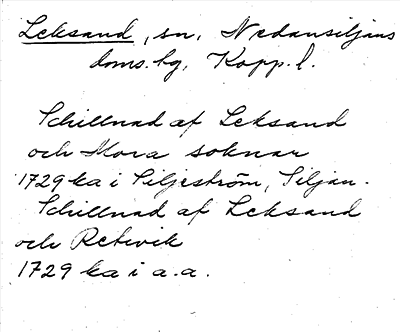 Leksand, sn, Nedansiljans
doms.hg, Kopp.l.
Schillnad af Leksand
och Mora soknar
1729 ka i Siljeström, Siljan.
Schillnad af Leksand
och Retevik
1729 ka i a.a.